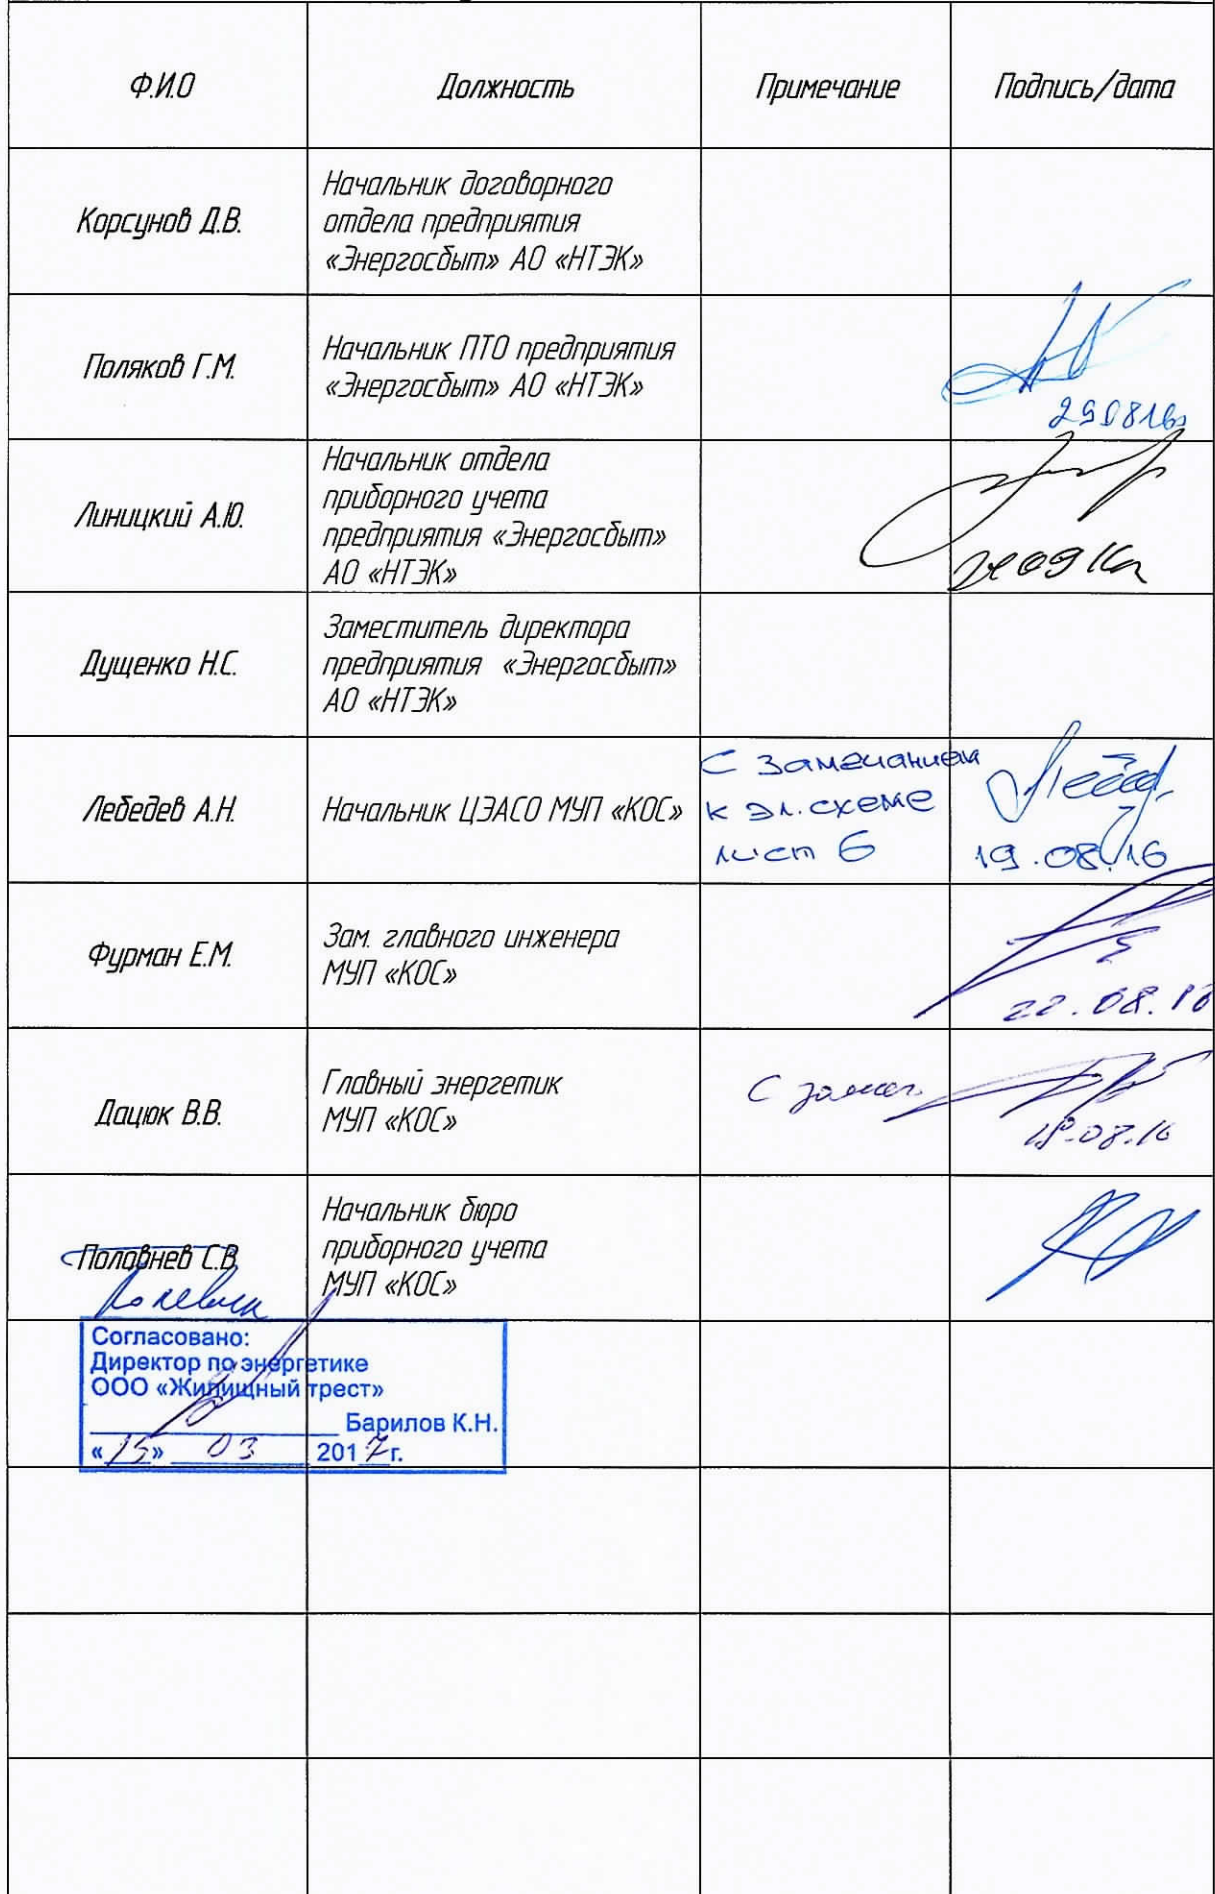 Ф.И.О Должность Примечание Подпись/дата
Корсунов Д.В.
Начальник договорного
отдела предприятия
«Энергосбыт» АО «НТЭК»
Поляков Г.М.
Начальник ПТО предприятия
«Энергосбыт» АО «НТЭК»
Линицкий А.Ю.
Начальник отдела
приборного учета
предприятия «Энергосбыт»
АО «НТЭК»
Дущенко Н.С.
Заместитель директора
предприятия «Энергосбыт»
АО «НТЭК»
Лебедев А.Н.
Начальник ЦЭАСО МУП «КОС»
С замечанием
к эл.схеме
лист 6
19.08.16
Фурман Е.М.
Зам. главного инженера
МУП «КОС»
22.08.16
Дацюк В.В.
Главный энергетик
МУП «КОС»
С замеч.
Половнев С.В.
Начальник бюро
приборного учета
МУП «КОС»
Согласовано:
Директор по энергетике
ООО «Жилищный трест»
Барилов К.Н.
«15» 03 2017г.